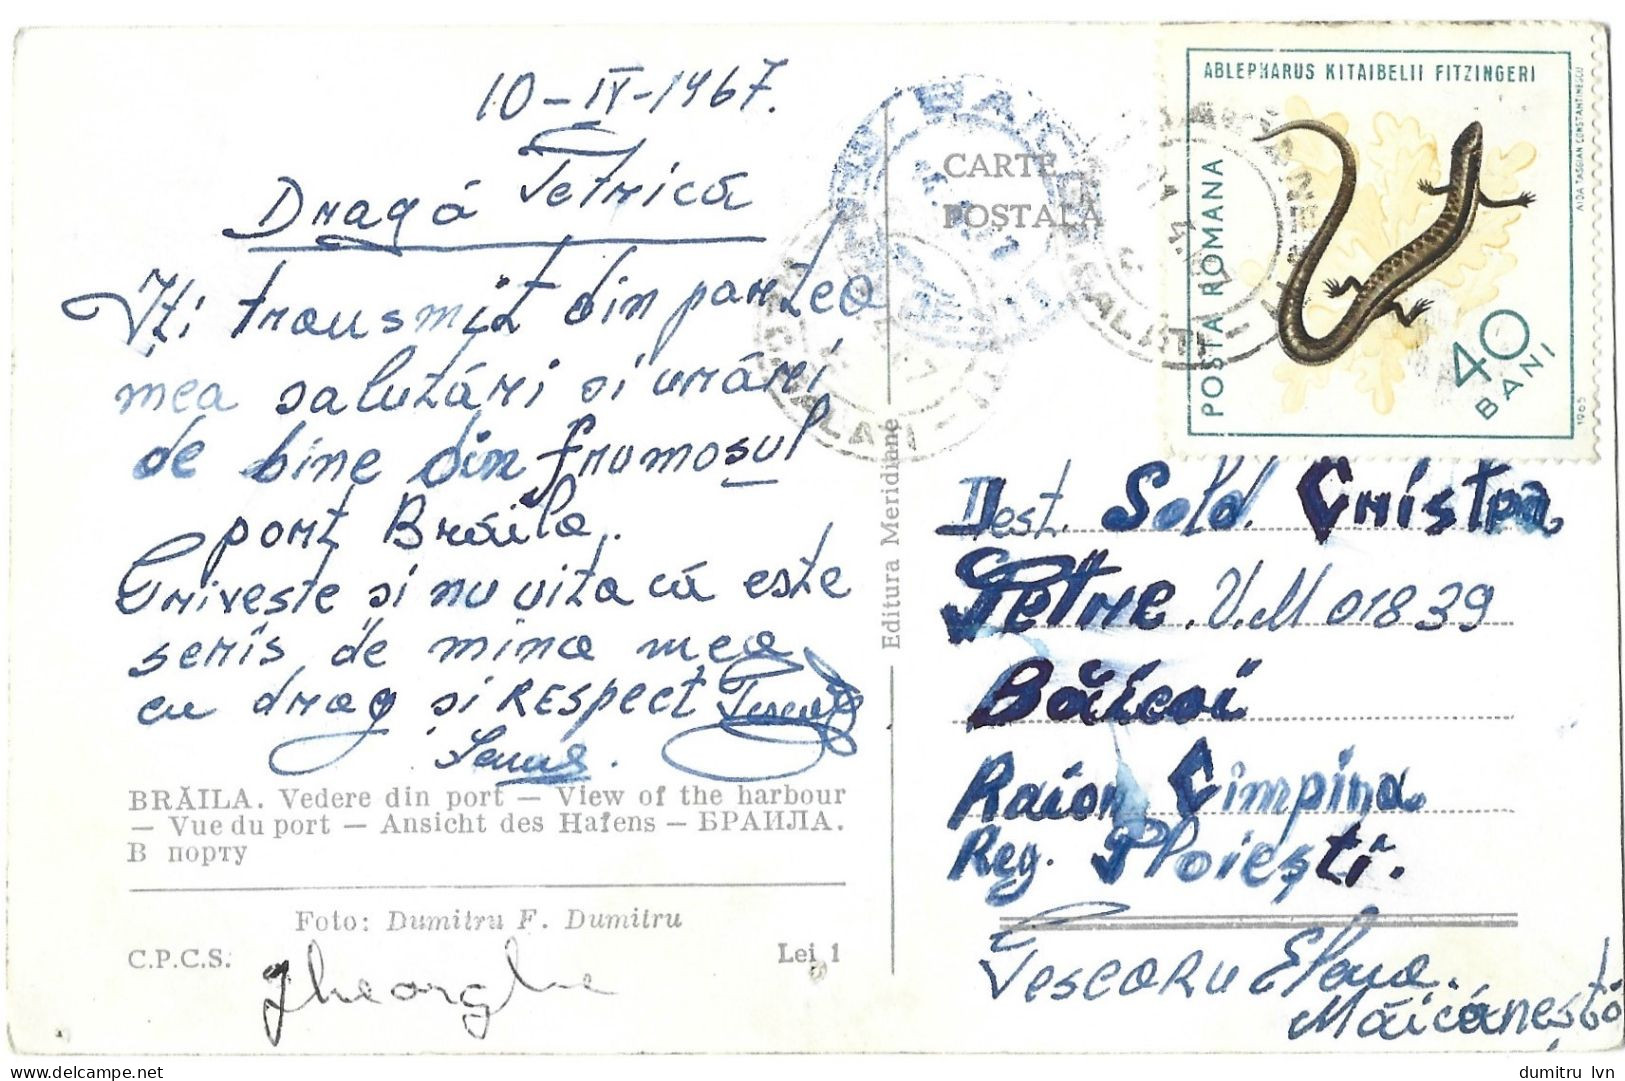 10-IV-1967.
Dragă Petrică
Iți transmit din partea
mea salutări si urări
de bine din frumosul
port Brăila.
Priveste si nu uita că este
scris de mina mea
cu drag și RESPECT
BRĂILA. Vedere din port — View of the harbour
— Vue du port — Ansicht des Hafens — БРАИЛА.
В порту
Foto: Dumitru F. Dumitru
C.P.C.S.
Lei 1
Gheorghe
Editura Meridiane
CARTE
POSTALĂ
GALAȚI
ABLEPHARUS KITAIBELII FITZINGERI
POSTA ROMANA
40
BANI
1965
AIDA TASGIAN CONSTANTINESCU
Dest. Sold. Cristea
Petre. U.M 01839
Băicoi
Raion Cimpina
Reg. Ploiești.
Pescaru Elena.
Măicănești
dumitru lvn